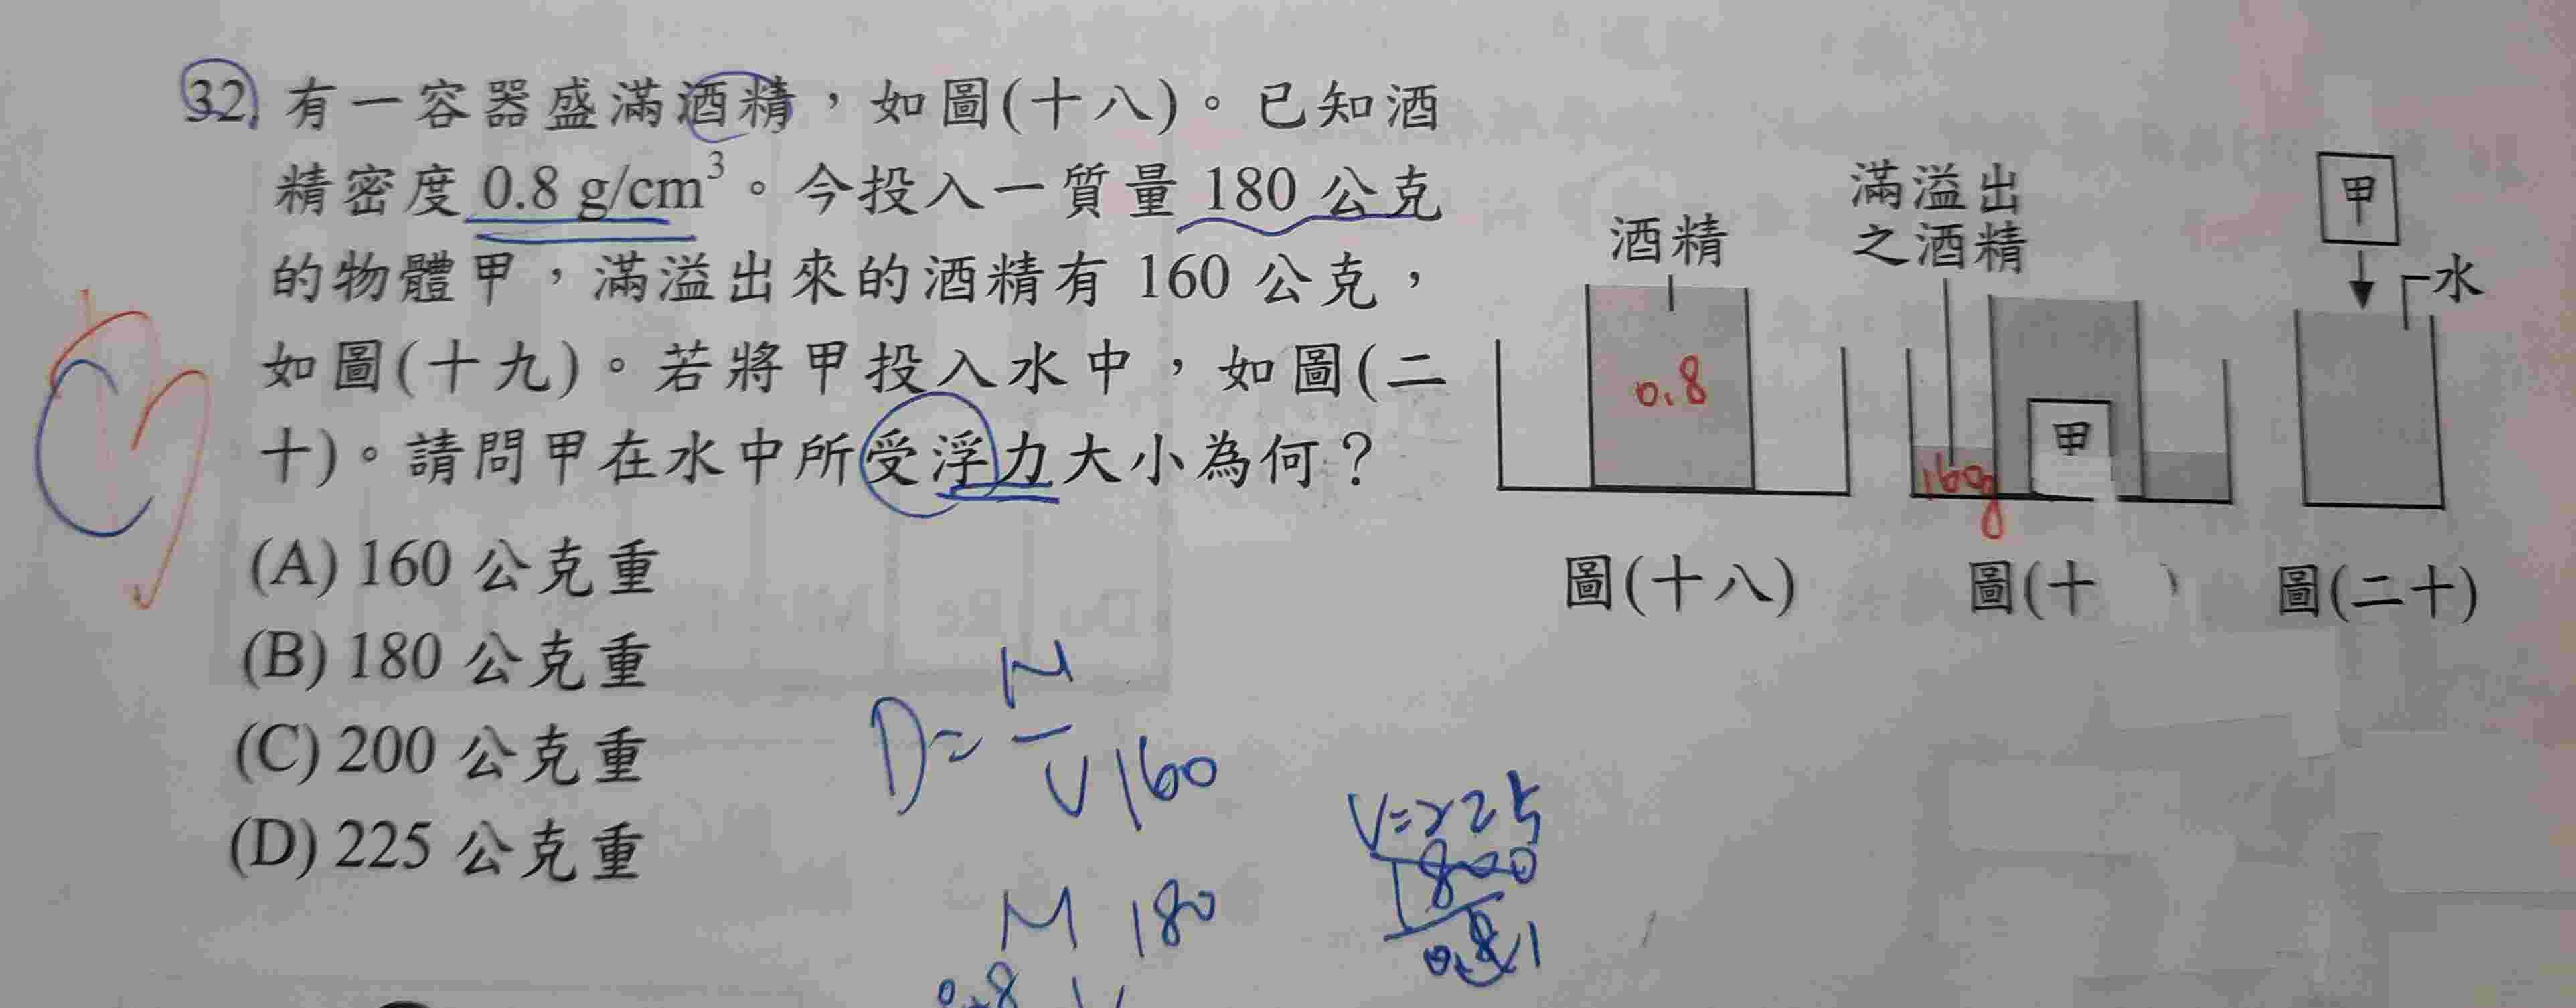 32. 有一容器盛滿酒精，如圖(十八)。已知酒
精密度 0.8 g/cm³。今投入一質量 180 公克
的物體甲，滿溢出來的酒精有 160 公克，
如圖(十九)。若將甲投入水中，如圖(二
十)。請問甲在水中所受浮力大小為何？
(A) 160 公克重
(B) 180 公克重
(C) 200 公克重
(D) 225 公克重
酒精
0.8
圖(十八)
滿溢出
之酒精
甲
160g
圖(十
甲
水
圖(二十)
D = M
V 160
M 180
0.8 V
V=225
1800
0.8